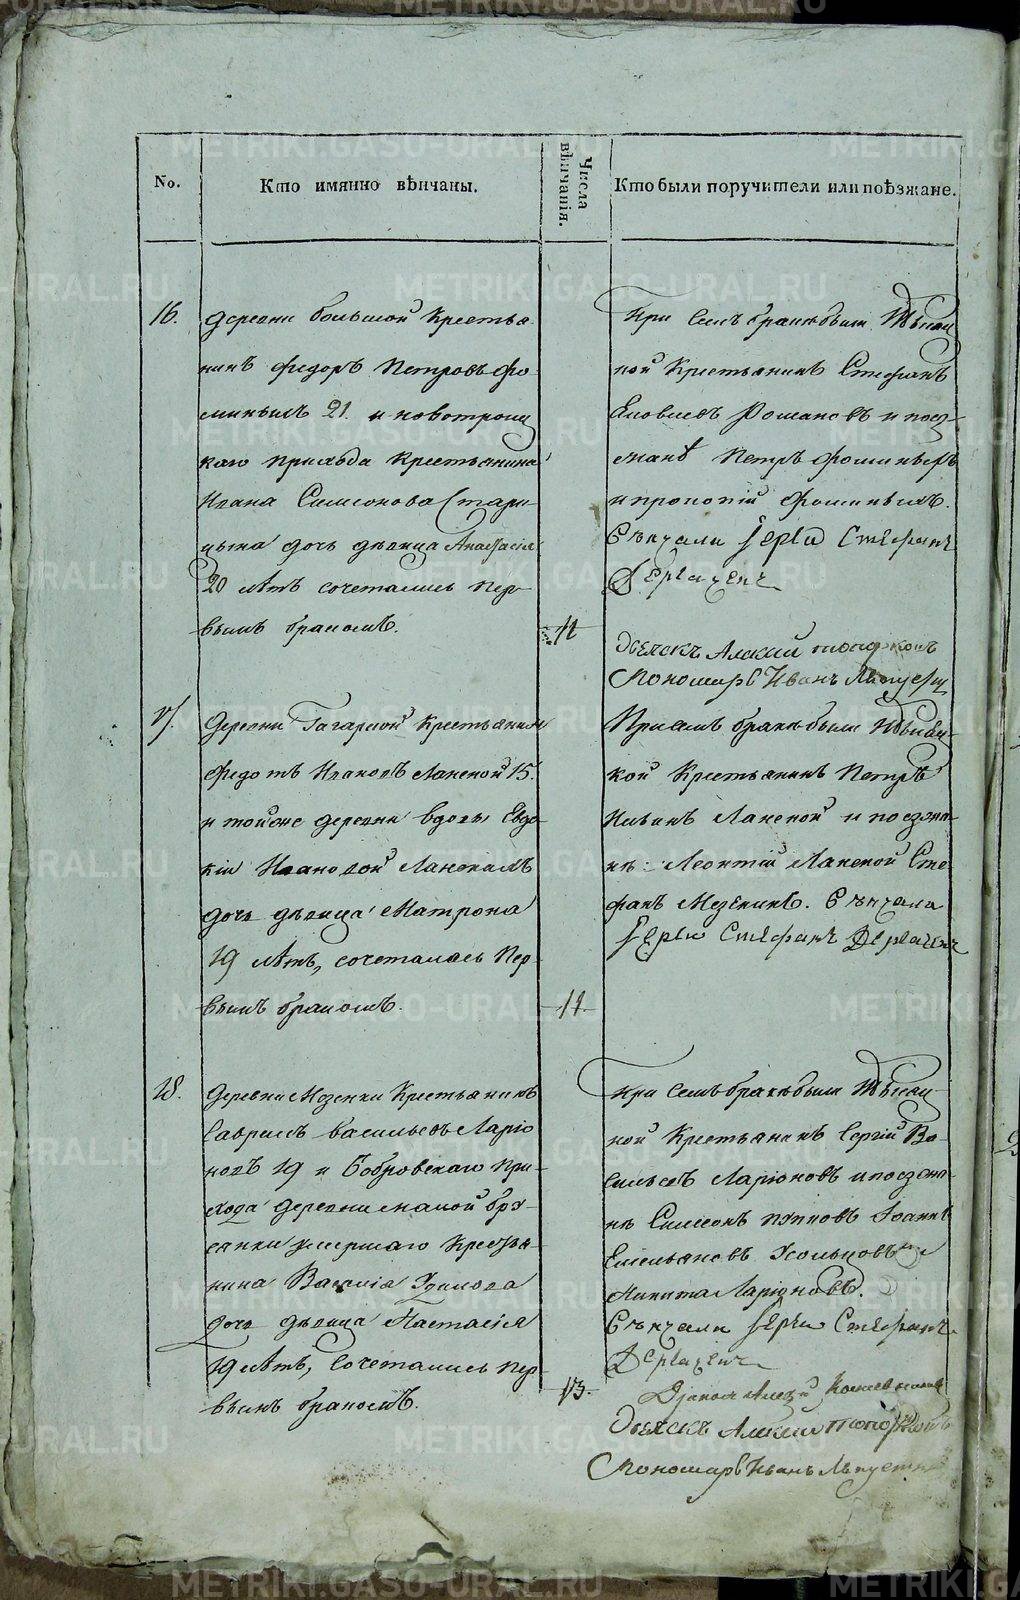 No.
Кто имянно вѣнчаны.
Числа вѣнчанія.
Кто были поручители или поѣзжане.
16.
деревни большой Крестья-
нинъ федоръ Петровъ Фо-
миныхъ 21. и новотроиц
каго прихода Крестьянина
Ивана Симеонова Стари-
цына дочь дѣвица Анастасія
20 лѣтъ сочетались пер-
вымъ бракомъ.
11
При семъ бракѣ были
Крестьянинъ Стефанъ
Яковлевъ Романовъ и поез-
жанѣ Петръ Фоминыхъ
и прокопій Фоминыхъ.
Вѣнчали Іерей Стефанъ
дьячекъ Алексій топорковъ
Пономарь Иванъ
17.
Деревни Гагарской Крестьянинъ
Федотъ Ивановъ Ланской 15.
и тойже деревни вдовы Евдо-
кіи Ивановой Ланскихъ
дочь дѣвица Матрона
19 лѣтъ, сочетались пер-
вымъ бракомъ.
11.
При семъ бракѣ были
Крестьянинъ Петръ
Ильинъ Ланской и поезжа-
нѣ: Леонтій Ланской Сте
фанъ Мезенинъ. Вѣнчали
Іерей Стефанъ
18.
деревни Мезенки Крестьянинъ
Гаврилъ васильевъ Ларіо
новъ 19 и Бобровскаго при-
хода деревни малой брус-
янки умершаго Крестья-
нина Василія
дочь дѣвица Настасія
19 лѣтъ, сочетались пер
вымъ бракомъ.
13.
При семъ бракѣ были
Крестьянинъ Сергій Ва-
сильевъ Ларіоновъ и поезжа-
нѣ Симеонъ Іоаннъ
Емельяновъ Усольцовъ и
Никита Ларіоновъ.
Вѣнчали Іерей Стефанъ
Дьяконъ
дьячекъ Алексій топорковъ
Пономарь Иванъ
METRIKI.GASO-URAL.RU